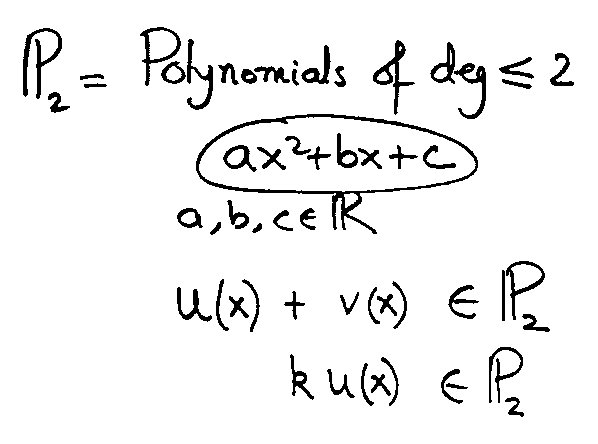 ℙ₂ = Polynomials of deg ≤ 2
ax²+bx+c
a, b, c ∈ ℝ
u(x) + v(x) ∈ ℙ₂
k u(x) ∈ ℙ₂